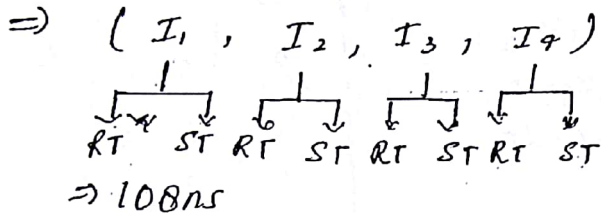 ⇒ ( I₁ , I₂ , I₃ , I₄ )
RT ST RT ST RT ST RT ST
⇒ 108ns